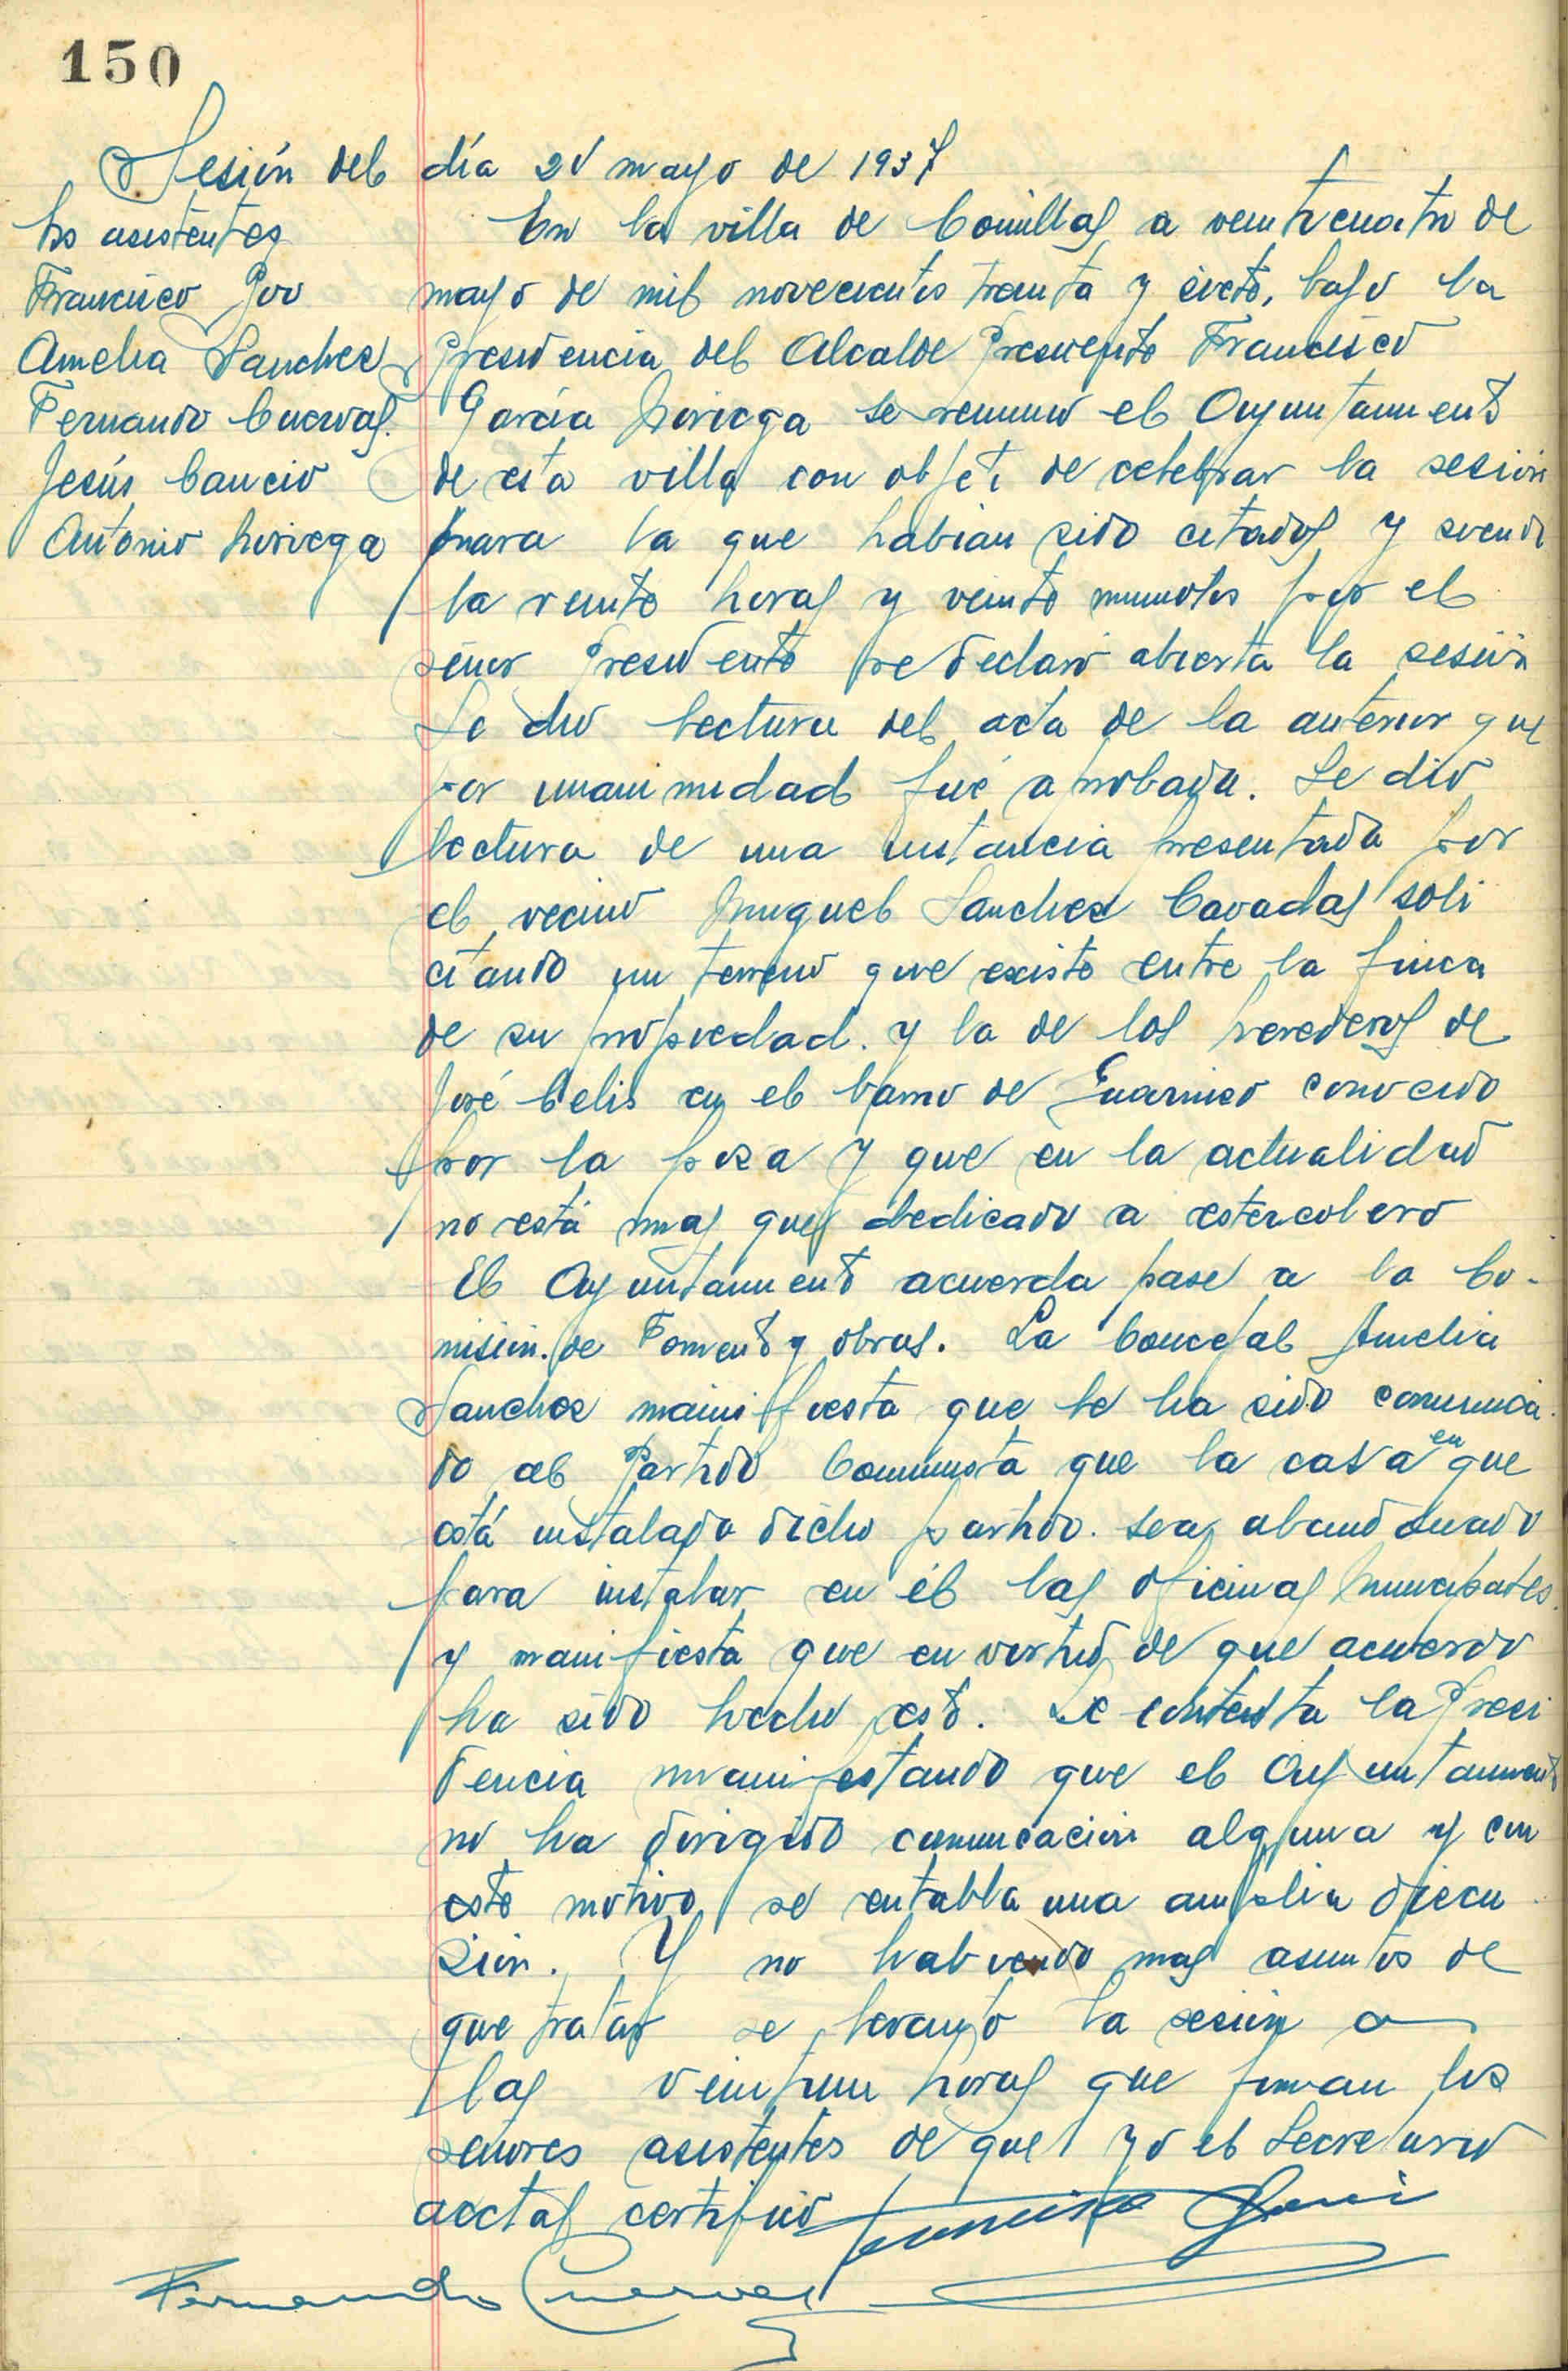 150
Sesión del día 24 mayo de 1937
Sres asistentes
Francisco Poo
Amelia Sanchez
Fernando Cuevas.
Jesús Cancio
Antonio Noriega
En la villa de Comillas a veinticuatro de
mayo de mil novecientos treinta y siete, bajo la
Presidencia del Alcalde Presidente Francisco
García Noriega se reunio el Ayuntamiento
de esta villa con objeto de celebrar la sesión
para la que habian sido citados y siendo
la veinte horas y veinte minutos por el
señor Presidente se declaró abierta la sesión
Se dio lectura del acta de la anterior que
por unanimidad fué aprobada. Se dió
lectura de una instancia presentada por
el vecino Miguel Sanchez Cavadas soli
citando un terreno que existe entre la finca
de su propiedad. y la de los herederos de
José Celis en el barrio de conocido
por la poza y que en la actualidad
no está mas que dedicado a estercolero
El Ayuntamiento acuerda pase a la Co-
misión. de Fomento y obras. La Concejal Amelia
Sanchez manifiesta que le ha sido comunica
do al Partido Comunista que la casa en que
está instalado dicho partido. sea abandonado
para instalar en él las oficinas Municipales.
y manifiesta que en virtud de que acuerdo
ha sido hecho esto. Le contesta la Presi
dencia manifestando que el Ayuntamiento
no ha dirigido comunicacion alguna y con
este motivo se entabla una amplia discu
sion. Y no habiendo mas asuntos de
que tratar se levanto la sesión a
las veintiuna horas que firman los
señores asistentes de que yo el Secretario
acctal certifico Francisco Garcia
Fernando Cuevas